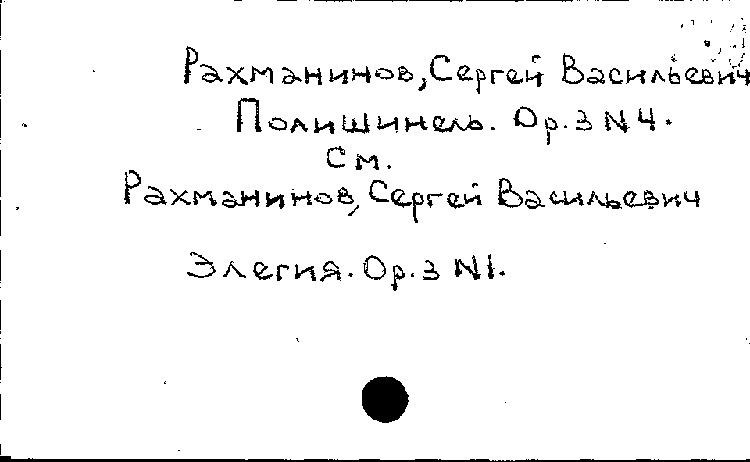 Рахманинов, Сергей Васильевич
Полишинель. Op. 3 N 4.
См.
Рахманинов, Сергей Васильевич
Элегия. Op. 3 N 1.